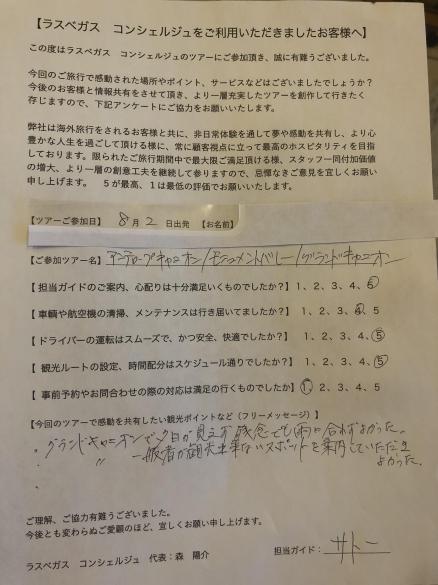 【ラスベガス　コンシェルジュをご利用いただきましたお客様へ】
この度はラスベガス　コンシェルジュのツアーにご参加頂き、誠に有難うございました。
今回のご旅行で感動された場所やポイント、サービスなどはございましたでしょうか？
今後のお客様と情報共有をさせて頂き、より一層充実したツアーを創作して行きたく
存じますので、下記アンケートにご協力をお願いいたします。
弊社は海外旅行をされるお客様と共に、非日常体験を通して夢や感動を共有し、より心
豊かな人生を過ごして頂ける様に、常に顧客視点に立って最高のホスピタリティを目指
しております。限られたご旅行期間中で最大限ご満足頂ける様、スタッフ一同付加価値
の増大、より一層の創意工夫を継続して参りますので、忌憚なきご意見を宜しくお願い
申し上げます。　５が最高、１は最低の評価でお願いいたします。
【ツアーご参加日】　8月 2 日出発　【お名前】
【ご参加ツアー名】アンテロープキャニオン/モニュメントバレー/グランドキャニオン
【担当ガイドのご案内、心配りは十分満足いくものでしたか？】1、2、3、4、5
【 車輌や航空機の清掃、メンテナンスは行き届いてましたか？】1、2、3、4、5
【ドライバーの運転はスムーズで、かつ安全、快適でしたか？】1、2、3、4、5
【 観光ルートの設定、時間配分はスケジュール通りでしたか？】1、2、3、4、5
【 事前予約やお問合わせの際の対応は満足の行くものでしたか】1、2、3、4、5
【今回のツアーで感動を共有したい観光ポイントなど（フリーメッセージ）】
・グランドキャニオンで夕日が見えず残念でも雨に合わずよかった。
・　〃　一般者が観光出来ないスポットを案内していただき
よかった。
・
ご理解、ご協力有難うございました。
今後とも変わらぬご愛顧のほど、宜しくお願い申し上げます。
ラスベガス　コンシェルジュ　代表：森　陽介　担当ガイド：サトー